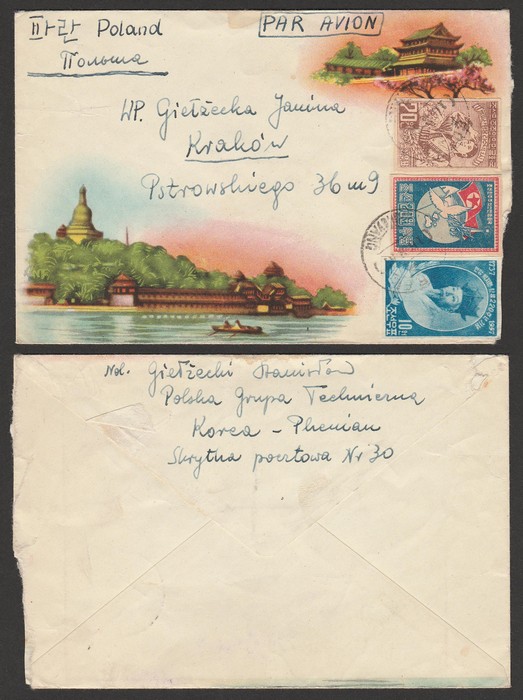 파란 Poland
Польша
PAR AVION
WP. Giełżecka Janina
Kraków
Pstrowskiego 36 m 9
20
1737
1957
10
Nad. Giełżecki Stanisław
Polska Grupa Techniczna
Korea - Phenian
Skrytna pocztowa Nr 30